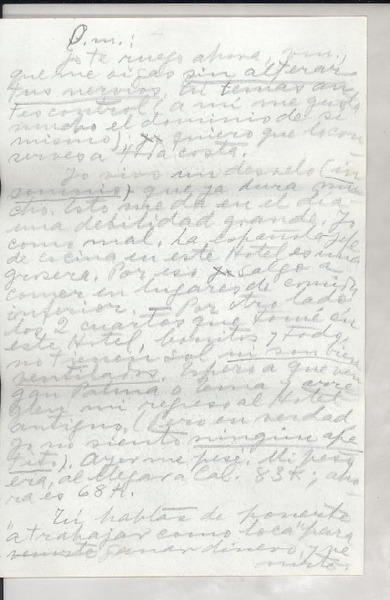 D.m.:
Yo te ruego ahora, m.m.,
que me oigas sin alterar
tus nervios. Tú temas an
tes control (a mí me gusta
mucho el dominio de sí
mismo); yo quiero que lo con
serves a toda costa.
Yo vivo un desvelo (in
somnio) que ya dura mu
cho. Esto me da en el día
una debilidad grande. Yo
como mal. La española jefe
de cocina en este Hotel es una
grosera. Por eso yo salgo a
comer en lugares de comida
inferior. — Por otro lado
los 2 cuartos que tomé en
este Hotel, bonitos y todo,
no tienen sol ni son bien
ventilados. Espero a que ven
gan Palma o Coma y arre
glen mi regreso al Hotel
antiguo, (pero en verdad
yo no siento ningún ape
tito). Ayer me pesé. Mi peso
era, al llegar a Cal. 83 K; aho
ra es 68 K.
Tú hablas de ponerte
"a trabajar como loca" para
ganar dinero, y ve